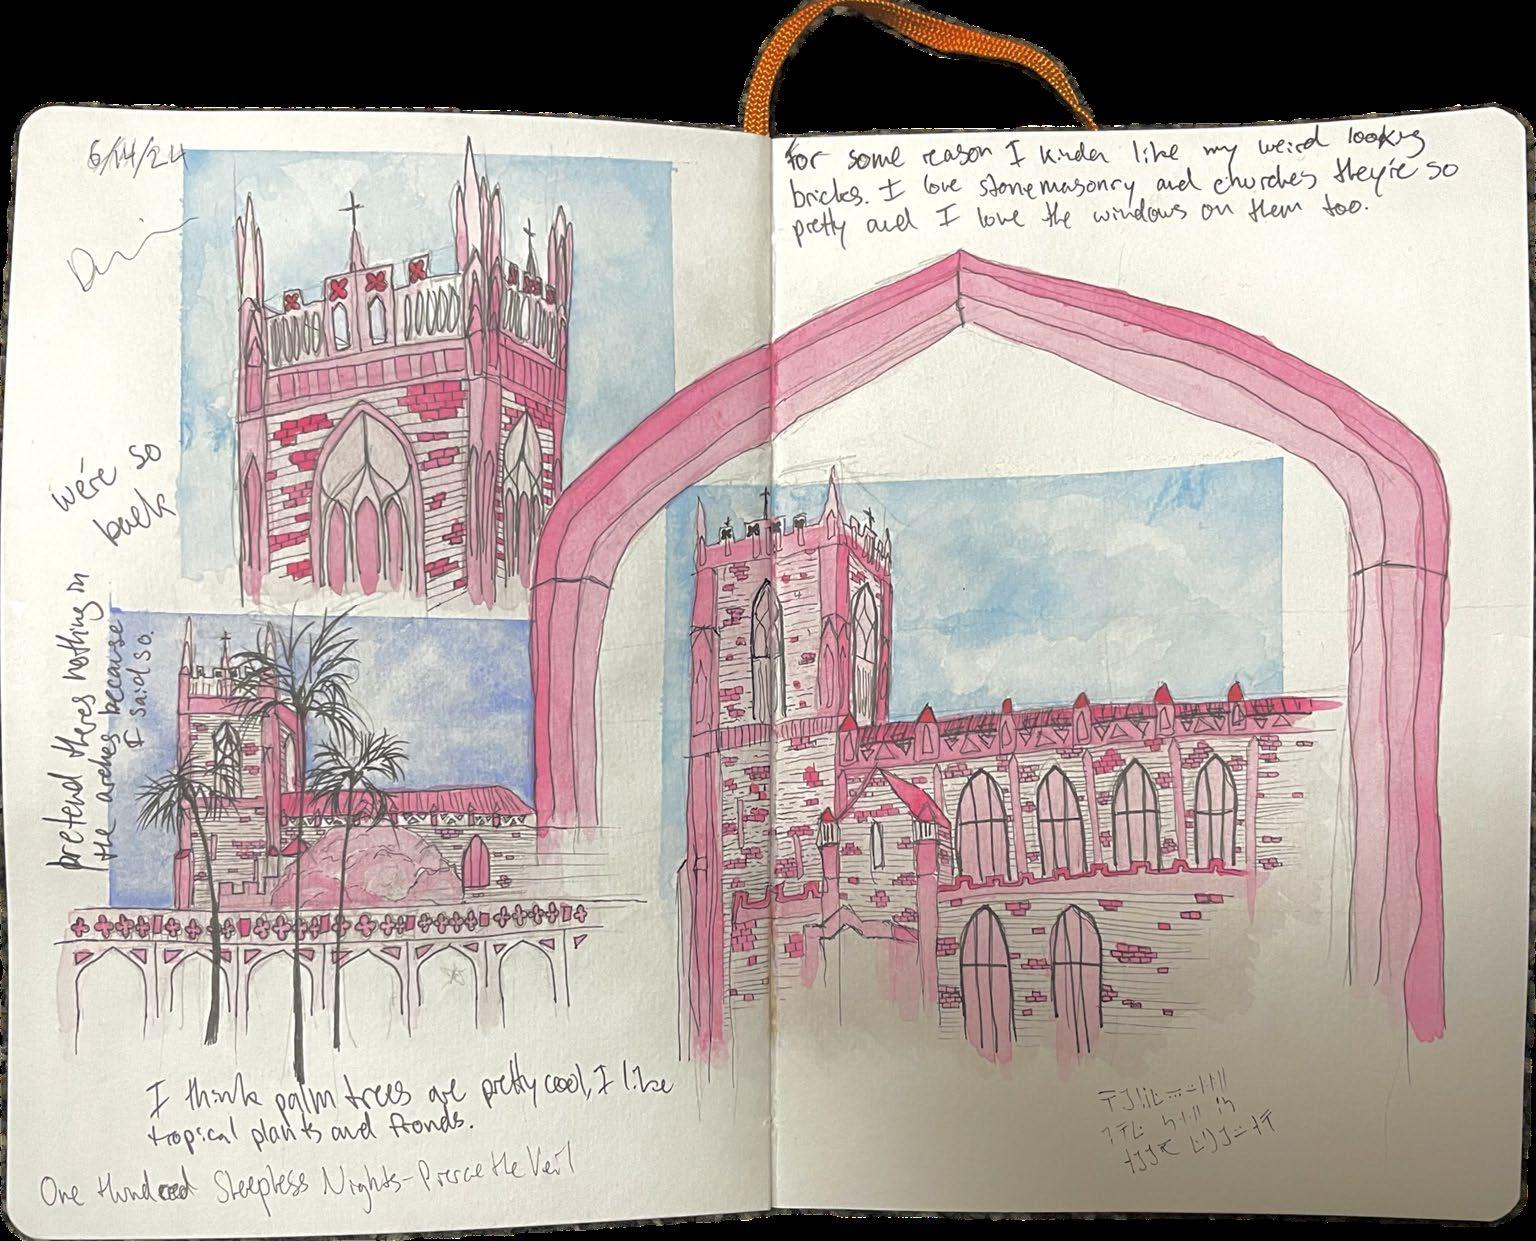 6/14/24
we're so
back
pretend theres nothing in
the arches because
I said so.
I think palm trees are pretty cool, I like
tropical plants and fronds.
One Hundred Sleepless Nights-Pierce the Veil
For some reason I kinda like my weird looking
bricks. I love stonemasonry and churches they're so
pretty and I love the windows on them too.